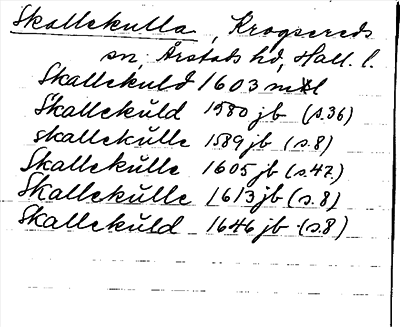 Skallekulla, Krogsereds
sn, Årstads hd, Hall. l.
Skallekuld 1603 mtl
Skallekŭld 1580 jb (s.36)
Skallekŭlle 1589 jb (s.8)
Skallekŭlle 1605 jb (s.47)
Skallekŭlle 1613 jb (s.8)
Skallekŭld 1646 jb (s.8)